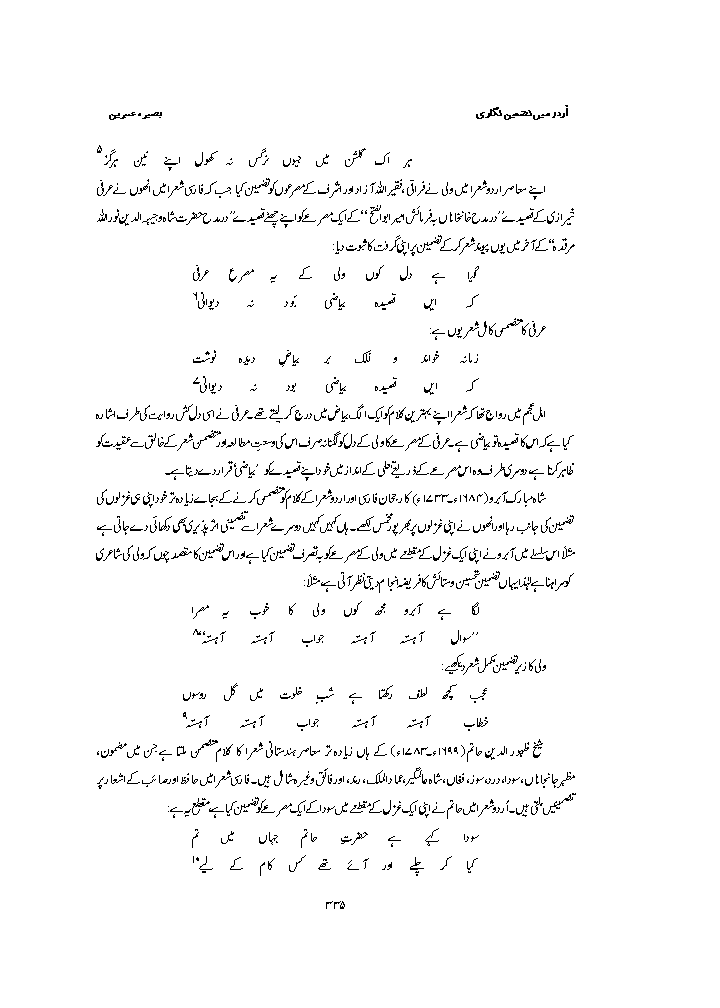 اُردو میں تضمین نگاری
بصیرہ عنبرین
ہر اک گلشن میں جیوں نرگس نہ کھول اپنے نین ہرگز۵
اپنے معاصر اردو شعرا میں ولی نے فراقی، فقیر اللہ آزاد اور اشرف کے مصرعوں کو تضمین کیا جب کہ فارسی شعرا میں انھوں نے عرفی
شیرازی کے قصیدے ’’در مدح خانخاناں بہ فرمائش امیر ابوالفتح‘‘ کے ایک مصرعے کو اپنے چھٹے قصیدے ’’در مدح حضرت شاہ وجیہہ الدین نور اللہ
مرقدہ‘‘ کے آخر میں یوں پیوندِ شعر کر کے تضمین پر اپنی گرفت کا ثبوت دیا:
گویا ہے دل کوں ولی کے یہ مصرع عرفی
کہ ایں قصیدہ بیاضی بُود نہ دیوانی۶
عرفی کا متضمن کامل شعر یوں ہے:
زمانہ خواند و فلک بر بیاضِ دیدہ نوشت
کہ ایں قصیدہ بیاضی بود نہ دیوانی۷
اہلِ عجم میں رواج تھا کہ شعرا اپنے بہترین کلام کو ایک الگ بیاض میں درج کر لیتے تھے۔ عرفی نے اسی دل کش روایت کی طرف اشارہ
کیا ہے کہ اس کا قصیدہ تو بیاضی ہے۔ عرفی کے مصرعے کا ولی کے دل کو لگنا نہ صرف اس کی وسعتِ مطالعہ اور متضمن شعر کے خالق سے عقیدت کو
ظاہر کرتا ہے، دوسری طرف وہ اس مصرعے کے ذریعے تعلی کے انداز میں خود اپنے قصیدے کو ’بیاضی‘ قرار دے دیتا ہے۔
شاہ مبارک آبرو (۱۶۸۴ء۔۱۷۳۳ء) کا رجحان فارسی اور اردو شعرا کے کلام کو متضمن کرنے کے بجائے زیادہ تر خود اپنی ہی غزلوں کی
تضمین کی جانب رہا اور انھوں نے اپنی غزلوں پر بھرپور مخمس لکھے۔ ہاں کہیں کہیں دوسرے شعرا سے تضمینی اثر پذیری بھی دکھائی دے جاتی ہے
مثلاً اس سلسلے میں آبرو نے اپنی ایک غزل کے مقطعے میں ولی کے مصرعے کو بہ تصرف تضمین کیا ہے اور اس تضمین کا مقصد چوں کہ ولی کی شاعری
کو سراہنا ہے لہٰذا یہاں تضمین تحسین و ستائش کا فریضہ انجام دیتی نظر آتی ہے مثلاً:
لگا ہے آبرو مجھ کوں ولی کا خوب یہ مصرا
’’سوال آہستہ آہستہ جواب آہستہ آہستہ‘‘۸
ولی کا زیرِ تضمین مکمل شعر دیکھیے:
عجب کچھ لطف رکھتا ہے شبِ خلوت میں گل روسوں
خطاب آہستہ آہستہ جواب آہستہ آہستہ۹
شیخ ظہور الدین حاتم (۱۶۹۹ء۔۱۷۸۳ء) کے ہاں زیادہ تر معاصر ہندستانی شعرا کا کلام متضمن ملتا ہے جن میں مضمون،
مظہر جانِ جاناں، سودا، درد، سوز، فغاں، شاہ عالمگیر، عماد الملک، رند، اور فائق وغیرہ شامل ہیں۔ فارسی شعرا میں حافظ اور صائب کے اشعار پر
تضمینیں ملتی ہیں۔ اُردو شعرا میں حاتم نے اپنی ایک غزل کے مقطعے میں سودا کے ایک مصرعے کو تضمین کیا ہے، مقطع یہ ہے:
سودا کہے ہے حضرتِ حاتم جہاں میں تم
کیا کر چلے اور آئے تھے کس کام کے لیے۱۰
۳۳۵